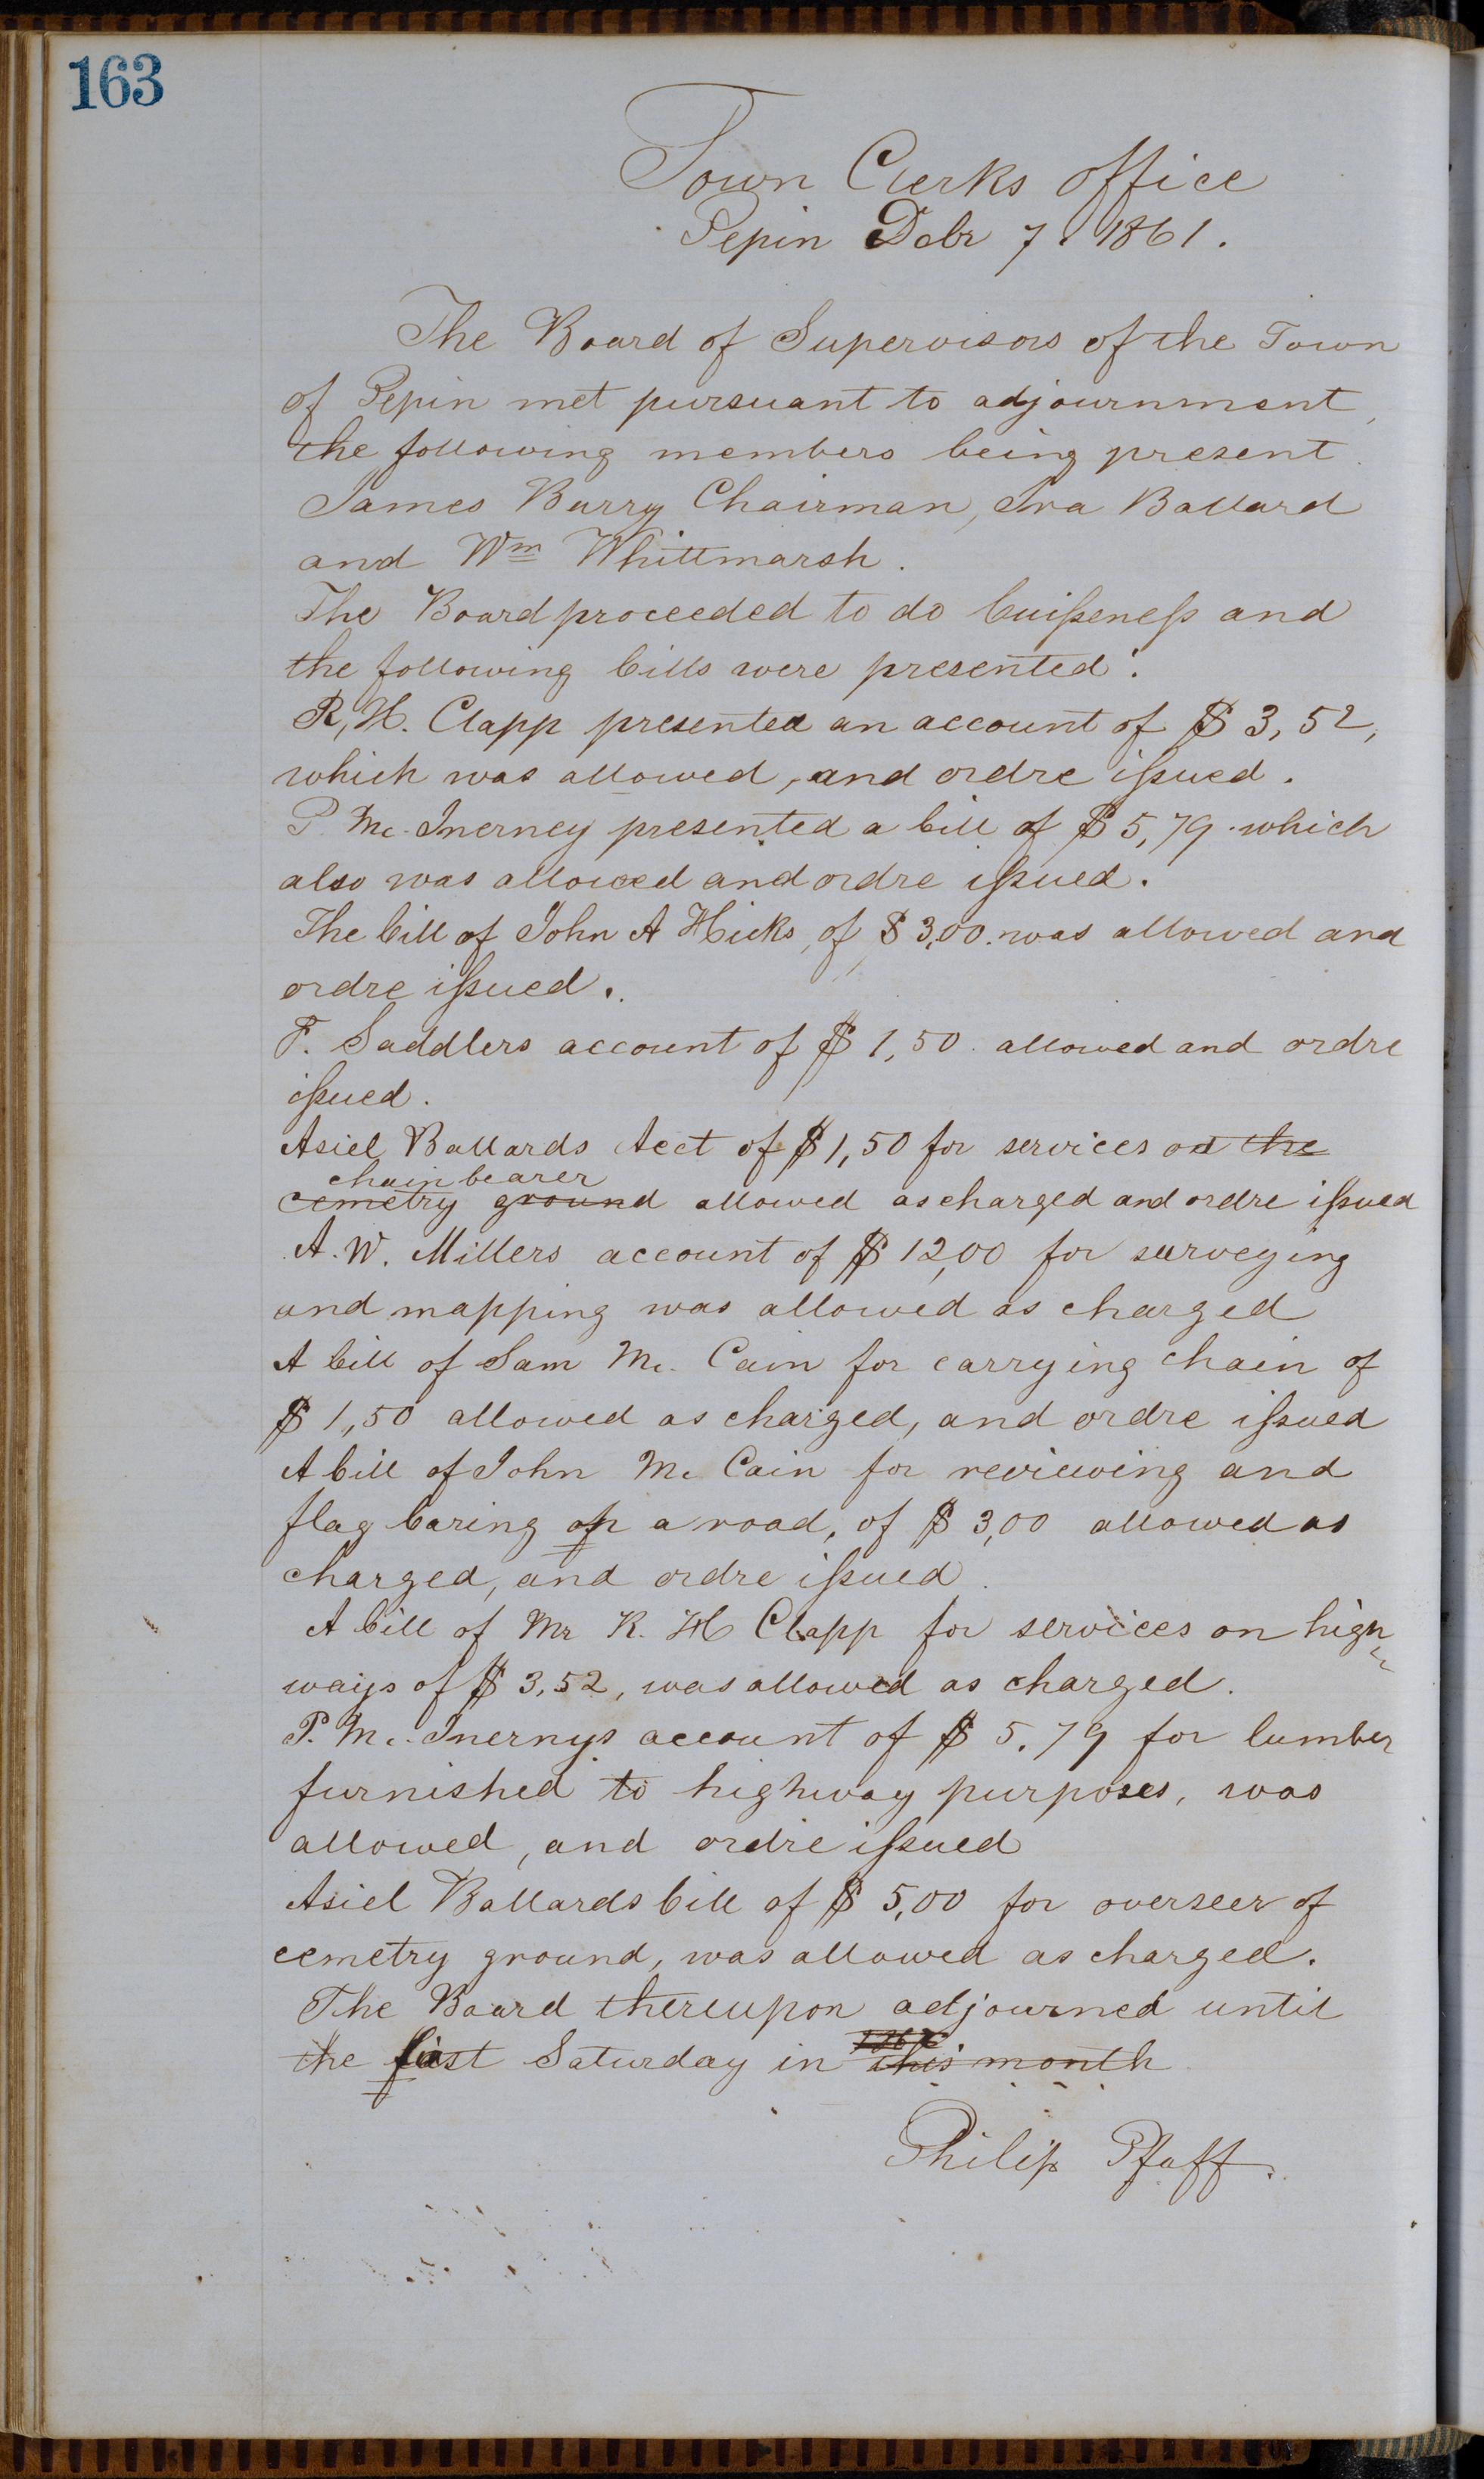 163
Town Clerks office
Pepin Debr 7. 1861.
The Board of Supervisors of the Town
of Pepin met pursuant to adjournment,
the following members being present.
James Barry Chairman, Ira Ballard
and Wm Whittmarsh.
The Board proceeded to do buisseness and
the following bills were presented:
R, H. Clapp presented an account of $3,52,
which was allowed, and ordre issued.
P. Mc. Inerney presented a bill of $5,79. which
also was allowed and ordre issued.
The bill of John A Hicks, of $3,00. was allowed and
ordre issued.
F. Saddlers account of $1,50. allowed and ordre
issued.
Asiel Ballards Acct of $1,50 for services on the
chain bearer
cemetry ground allowed as charged and ordre issued
A. W. Millers account of $12,00 for surveying
and mapping was allowed as charged
A bill of Sam Mc. Cain for carrying chain of
$1,50 allowed as charged, and ordre issued
A bill of John Mc Cain for reviewing and
flag baring on a road, of $3,00 allowed as
charged, and ordre issued.
A bill of Mr R. H Clapp for services on high
ways of $3,52, was allowed as charged.
P. Mc. Inernys account of $5.79 for lumber
furnished to highway purposes, was
allowed, and ordre issued
Asiel Ballards bill of $5,00 for overseer of
cemetry ground, was allowed as charged.
The Board thereupon adjourned until
the Saturday in this month
Philip Pfaff.